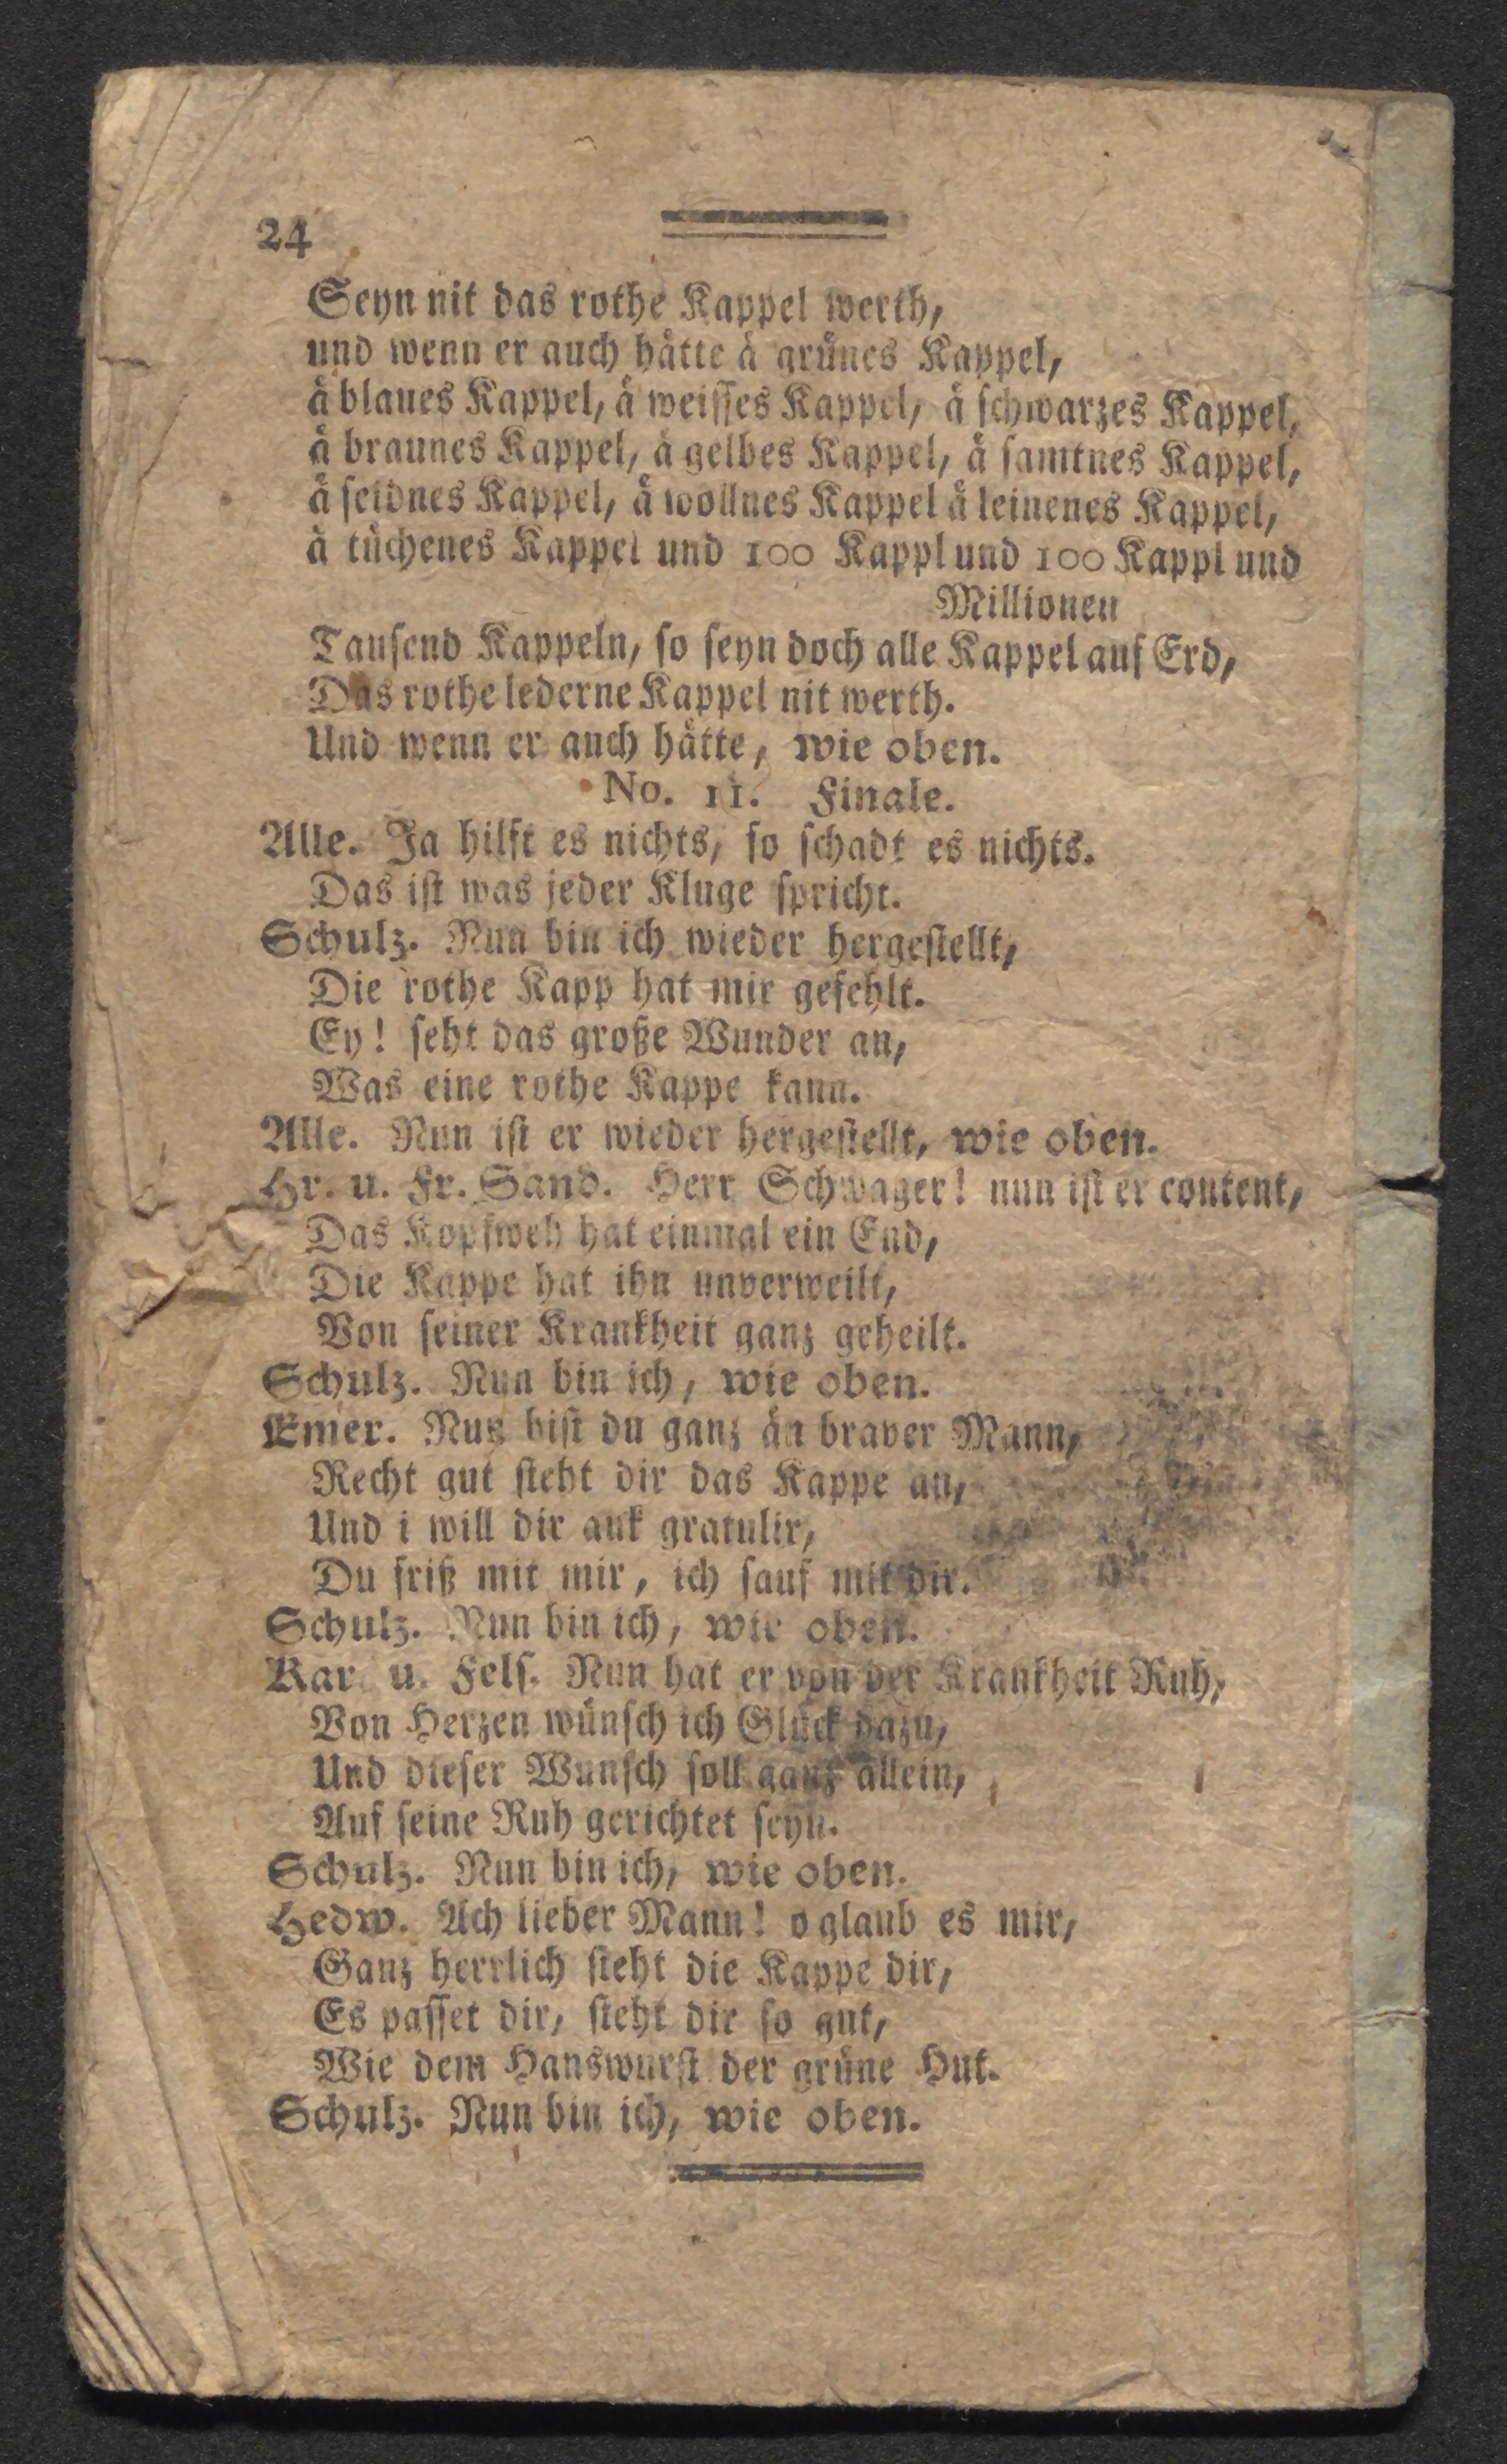 24
Seyn nit das rothe Kappel werth,
und wenn er auch hätte ä grünes Kappel,
ä blaues Kappel, ä weisses Kappel, ä schwarzes Kappel,
ä braunes Kappel, ä gelbes Kappel, ä samtnes Kappel,
ä seidnes Kappel, ä wollnes Kappel ä leinenes Kappel,
ä tüchenes Kappel und 100 Kappl und 100 Kappl und
Millionen
Tausend Kappeln, so seyn doch alle Kappel auf Erd,
Das rothe lederne Kappel nit werth.
Und wenn er auch hätte, wie oben.
No. 11. Finale.
Alle. Ja hilft es nichts, so schadt es nichts.
Das ist was jeder Kluge spricht.
Schulz. Nun bin ich wieder hergestellt,
Die rothe Kapp hat mir gefehlt.
Ey! seht das große Wunder an,
Was eine rothe Kappe kann.
Alle. Nun ist er wieder hergestellt, wie oben.
Hr. u. Fr. Sand. Herr Schwager! nun ist er content,
Das Kopfweh hat einmal ein End,
Die Kappe hat ihn unverweilt,
Von seiner Krankheit ganz geheilt.
Schulz. Nun bin ich, wie oben.
Emer. Nun bist du ganz än braver Mann,
Recht gut steht dir das Kappe an,
Und i will dir auk gratulir,
Du friß mit mir, ich sauf mit dir.
Schulz. Nun bin ich, wie oben.
Kar. u. Fels. Nun hat er von der Krankheit Ruh,
Von Herzen wünsch ich Glück dazu,
Und dieser Wunsch soll ganz allein,
Auf seine Ruh gerichtet seyn.
Schulz. Nun bin ich, wie oben.
Hedw. Ach lieber Mann! o glaub es mir,
Ganz herrlich steht die Kappe dir,
Es passet dir, steht dir so gut,
Wie dem Hanswurst der grüne Hut.
Schulz. Nun bin ich, wie oben.